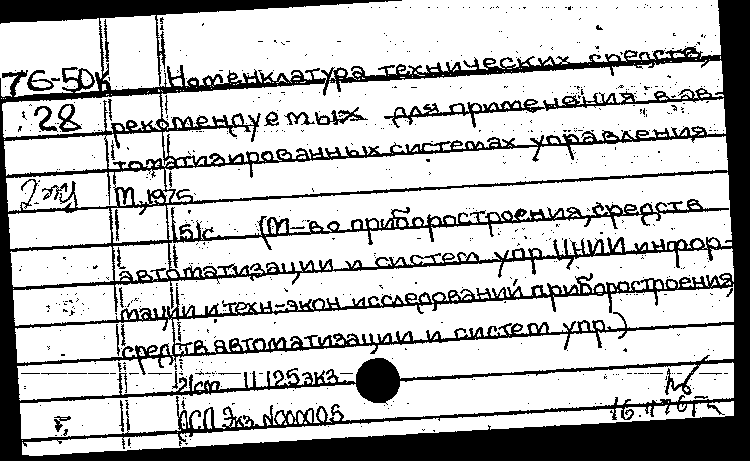 76-50к Номенклатура технических средств,
28 рекомендуемых для применения в ав-
томатизированных системах управления
М., 1975
151с. (М-во приборостроения, средств
автоматизации и систем упр. ЦНИИ инфор-
мации и техн-экон исследований приборостроения,
средств автоматизации и систем упр.)
21см 11.125 экз.
ДСП Экз. N00005